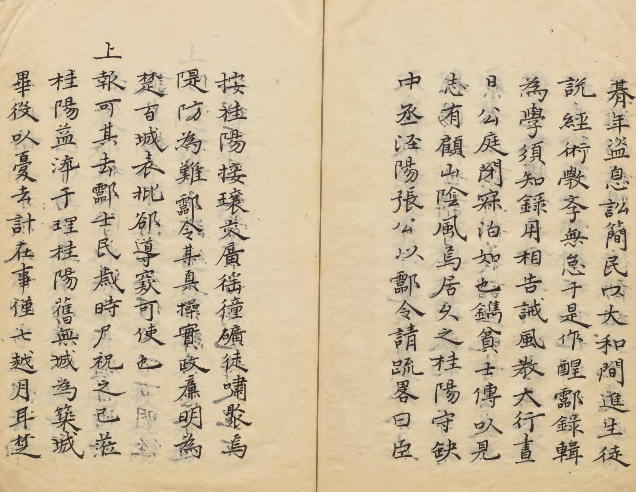 朞年盜息訟簡民以大和間進生徒
說經術斆孝無怠于是作醒酃錄輯
為學須知錄用相告誡風教大行晝
日公庭閉寂泊如也鐫貧士傳以見
志有顧山陰風焉居久之桂陽守缺
中丞涇陽張公以酃令請疏畧曰臣
按桂陽接壤交廣徭獞礦徒嘯聚焉
隄防為難酃令某真操實政廉明為
楚百城表批郤導窾可使也
上報可其去酃士民歲時尸祝之已蒞
桂陽益漈于理桂陽舊無城為築城
畢役以憂去計在事僅七越月耳楚